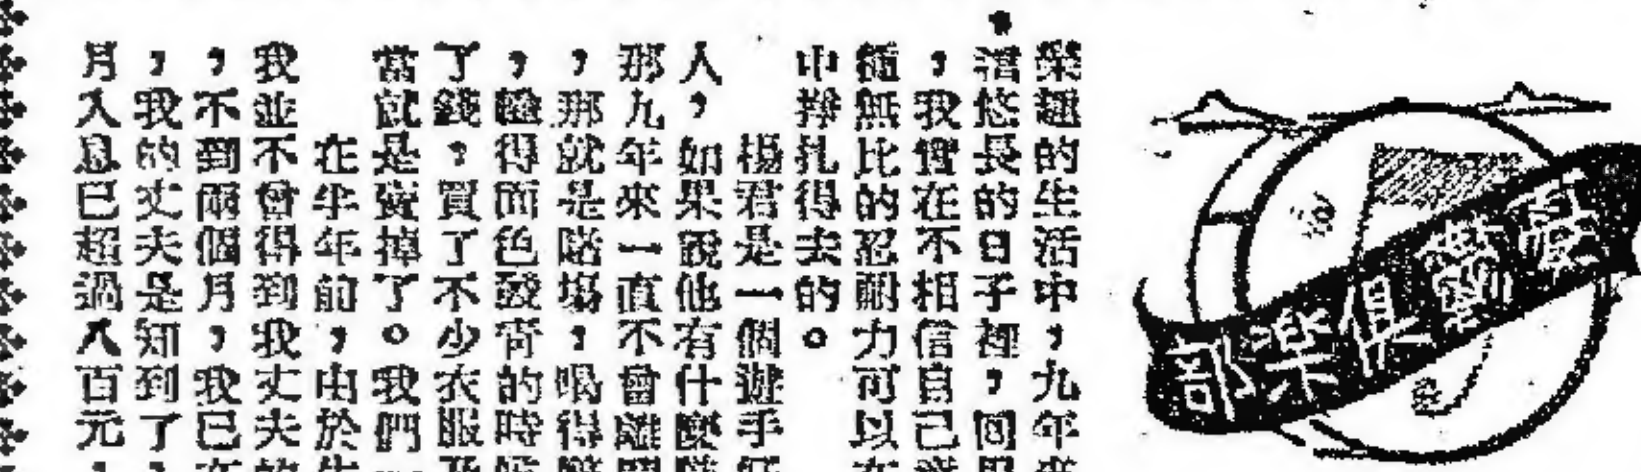 俱樂部
樂趣的生活中，九年來
，悠長的日子裡，回
，我實在不相信自己
種無比的忍耐力可以在
中掙扎得去的。
楊君是一個遊手
人，如果說他有什麼
那九年來一直不曾離
，那就是賭場，喝得
，得面色發青的時
了錢，買了不少衣服及
當就是賣掉了。我們
在半年前，由於生
我並不曾得到我丈夫的
，不到兩個月，我已在
，我的丈夫是知到了，
月入息已超過八百元，